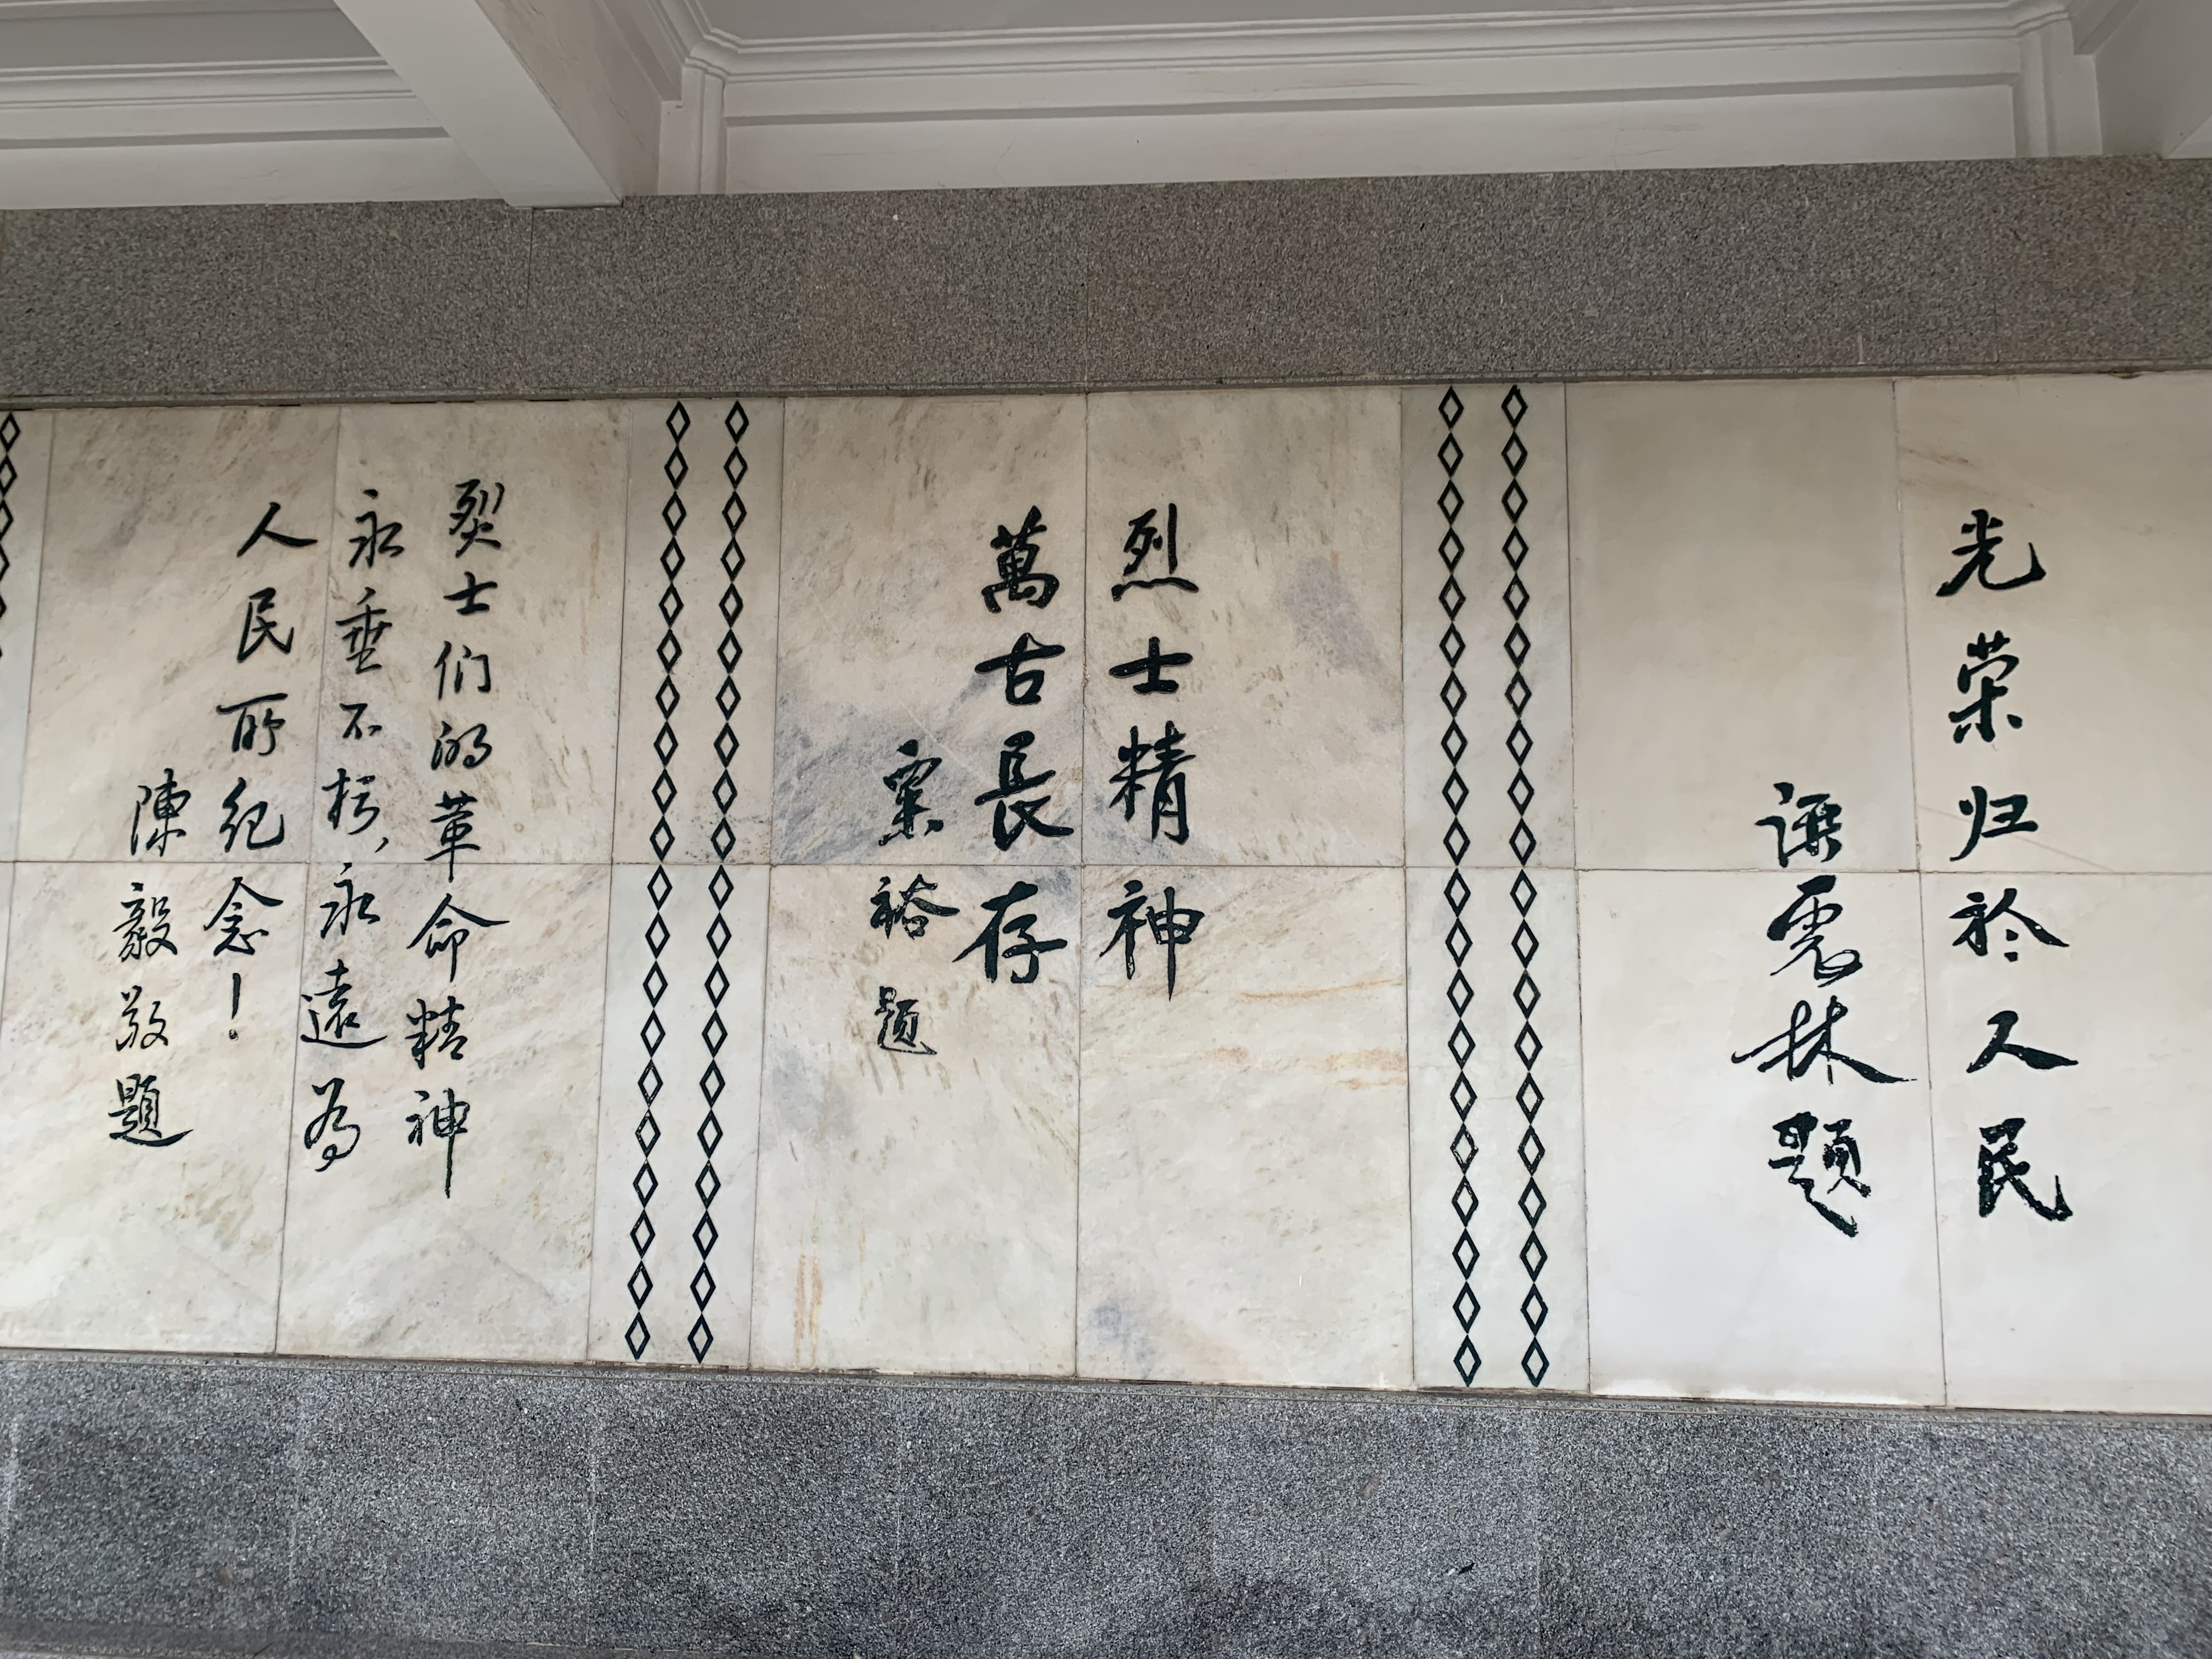 光荣归於人民
谭震林题
烈士精神
萬古長存
粟裕题
烈士们的革命精神
永垂不朽，永遠为
人民所纪念！
陳毅敬題